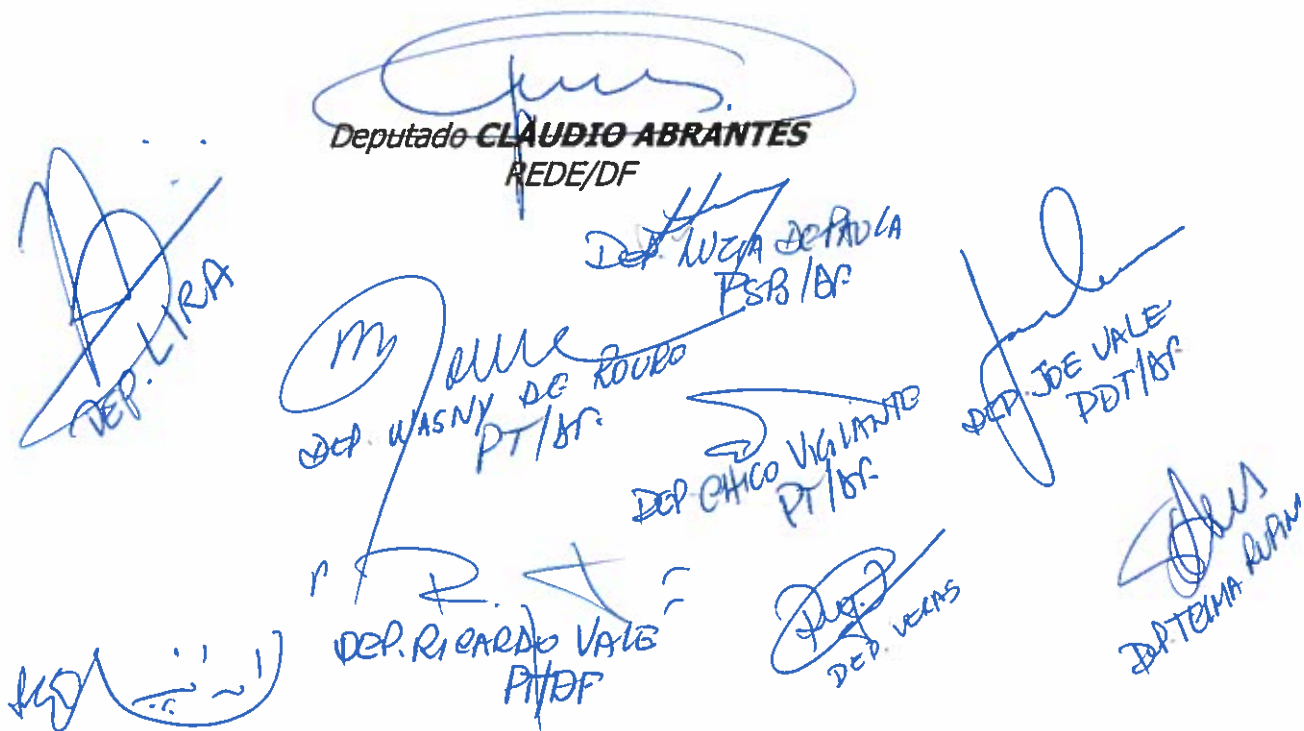 Deputado CLÁUDIO ABRANTES
REDE/DF
DEP. LUZIA DE PAULA
PSB/DF
DEP. LIRA
DEP. WASNY DE ROURO
PT/DF.
DEP. JOE VALE
PDT/DF.
DEP. CHICO VIGILANTE
PT/DF.
DEP. RICARDO VALE
PT/DF
DEP. VERAS
DEP. TELMA RUFINO